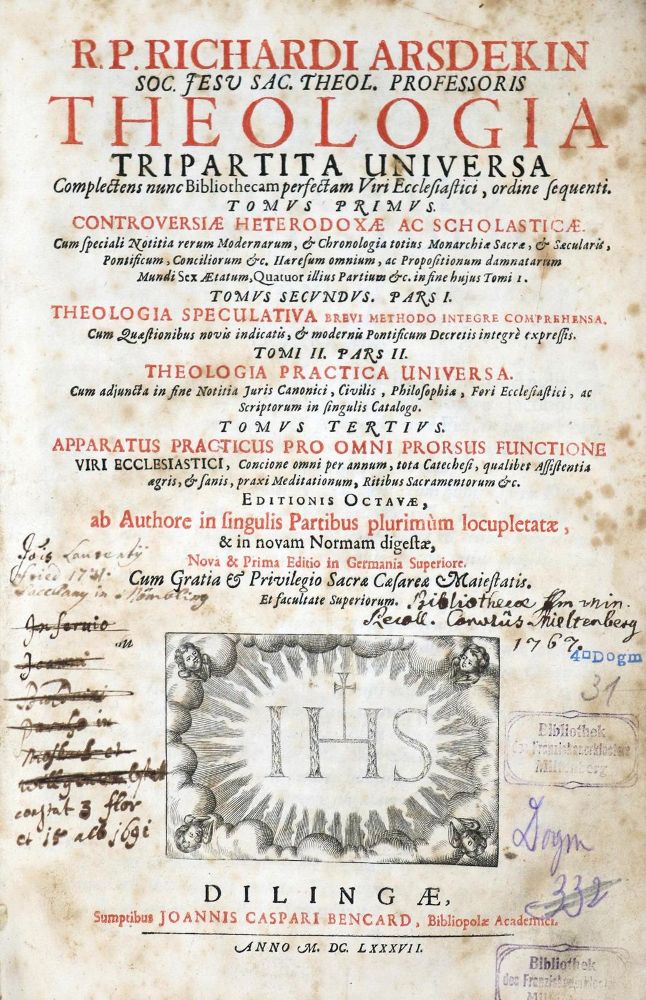 R. P. RICHARDI ARSDEKIN
SOC. JESU SAC. THEOL. PROFESSORIS
THEOLOGIA
TRIPARTITA UNIVERSA
Complectens nunc Bibliothecam perfectam Viri Ecclesiastici, ordine sequenti.
TOMVS PRIMVS.
CONTROVERSIÆ HETERODOXÆ AC SCHOLASTICÆ.
Cum speciali Notitia rerum Modernarum, & Chronologia totius Monarchiæ Sacræ, & Sæcularis,
Pontificum, Conciliorum &c. Hæresum omnium, ac Propositionum damnatarum
Mundi Sex Ætatum, Quatuor illius Partium &c. in fine hujus Tomi 1.
TOMVS SECVNDVS. PARS I.
THEOLOGIA SPECULATIVA BREVI METHODO INTEGRE COMPREHENSA,
Cum Quæstionibus novis indicatis, & modernis Pontificum Decretis integrè expressis.
TOMI II. PARS II.
THEOLOGIA PRACTICA UNIVERSA.
Cum adjuncta in fine Notitia Juris Canonici, Civilis, Philosophiæ, Fori Ecclesiastici, ac
Scriptorum in singulis Catalogo.
TOMVS TERTIVS.
APPARATUS PRACTICUS PRO OMNI PRORSUS FUNCTIONE
VIRI ECCLESIASTICI, Concione omni per annum, tota Catechesi, qualibet Assistentia
ægris, & sanis, praxi Meditationum, Ritibus Sacramentorum &c.
EDITIONIS OCTAVÆ,
ab Authore in singulis Partibus plurimùm locupletatæ,
& in novam Normam digestæ,
Nova & Prima Editio in Germania Superiore.
Cum Gratia & Privilegio Sacræ Cæsareæ Majestatis.
Et facultate Superiorum.
Bibliothecæ ffm min.
Recoll. Conventûs Miltenberg
1767.
4□Dogm
31
Jois Laurentij
1731
in Mömbling
Inservio
Joanni
in
Mosbach et
constat 3 flor
et 15 alb 1691
IHS
Bibliothek
des Franziskanerklosters
Miltenberg
Dogm
332
DILINGÆ,
Sumptibus JOANNIS CASPARI BENCARD, Bibliopolæ Academici.
ANNO M. DC. LXXXVII.
Bibliothek
des Franziskanerklosters